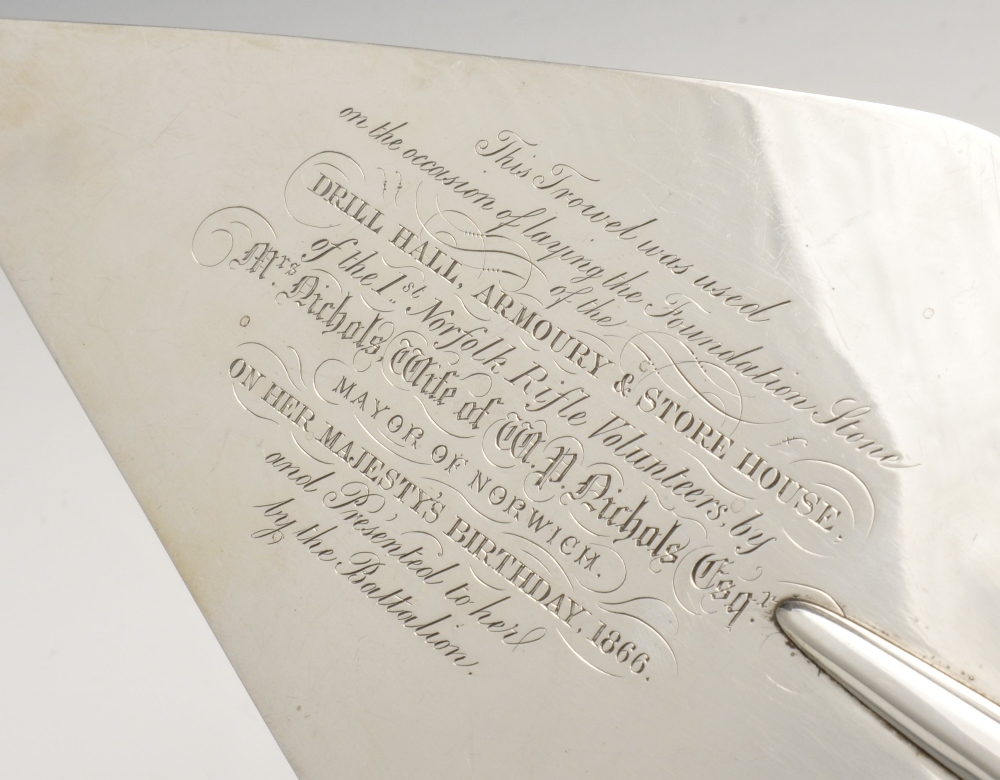 This Trowel was used
on the occasion of laying the Foundation Stone
of the
DRILL HALL, ARMOURY & STORE HOUSE.
of the 1st Norfolk Rifle Volunteers, by
Mrs Nichols, Wife of W.P. Nichols Esqr
MAYOR OF NORWICH.
ON HER MAJESTY'S BIRTHDAY, 1866.
and Presented to her
by the Battalion.